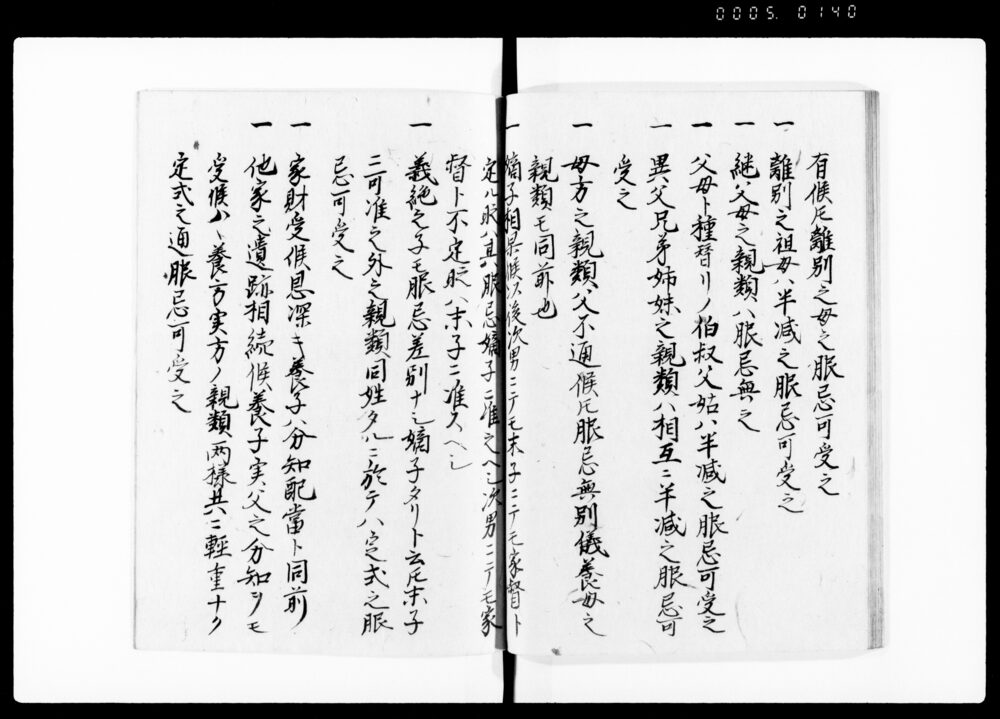 0005. 0140
有候圧離別之母之服忌可受之
一 離別之祖母ハ半減之服忌可受之
一 継父母之親類ハ服忌無之
一 父母ト種替リノ伯叔父姑ハ半減之服忌可受之
一 異父兄弟姉妹之親類ハ相互ニ半減之服忌可
受之
一 母方之親類父不通候圧服忌無別儀養母之
親類モ同前也
一 嫡子相果候以後次男ニテモ末子ニテモ家督ト
定ル時ハ其服忌嫡子ニ准之ヘシ次男ニテモ家
督ト不定時ハ末子ニ准スヘシ
一 義絶之子モ服忌差別ナシ嫡子タリト云圧末子
ニ可准之外之親類同姓タルニ於テハ定式之服
忌可受之
一 家財受候恩深キ養子ハ分知配當ト同前
一 他家之遺跡相続候養子実父之分知ヲモ
受候ハヽ養方実方ノ親類両様共ニ輕重ナク
定式之通服忌可受之